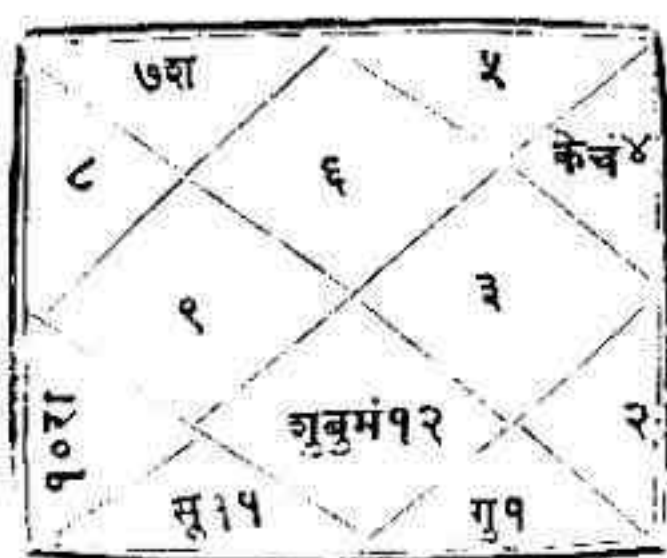 ७श
५
८
६
के चं ४
९
३
१०रा
शुबुमं१२
२
सू११
गु१